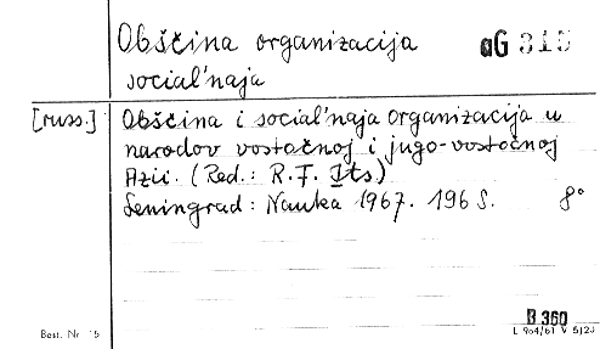 Obščina organizacija aG 315
social'naja
[russ.] Obščina i social'naja organizacija u
narodov vostočnoj i jugo-vostočnoj
Azii. (Red.: R.F. Its)
Leningrad: Nauka 1967. 196 S. 8°
B 360
Best. Nr 15 L 904/61 V 5/23